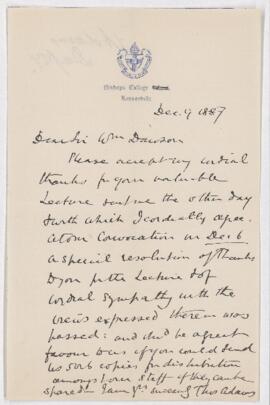 Bishops College
Lennoxville
Dec. 9 1887
Dear Sir Wm Dawson
Please accept my cordial
thanks for your valuable
Lecture sent me the other day
& with which I cordially agree.
At our Convocation on Dec 6
a special resolution of thanks
to you for the Lecture & of
cordial sympathy with the
views expressed therein was
passed: and it wd be a great
favour to us if you could send
us 5 or 6 copies for distribution
amongst our Staff if they can be
spared. I am yrs sincerely Thos Adams